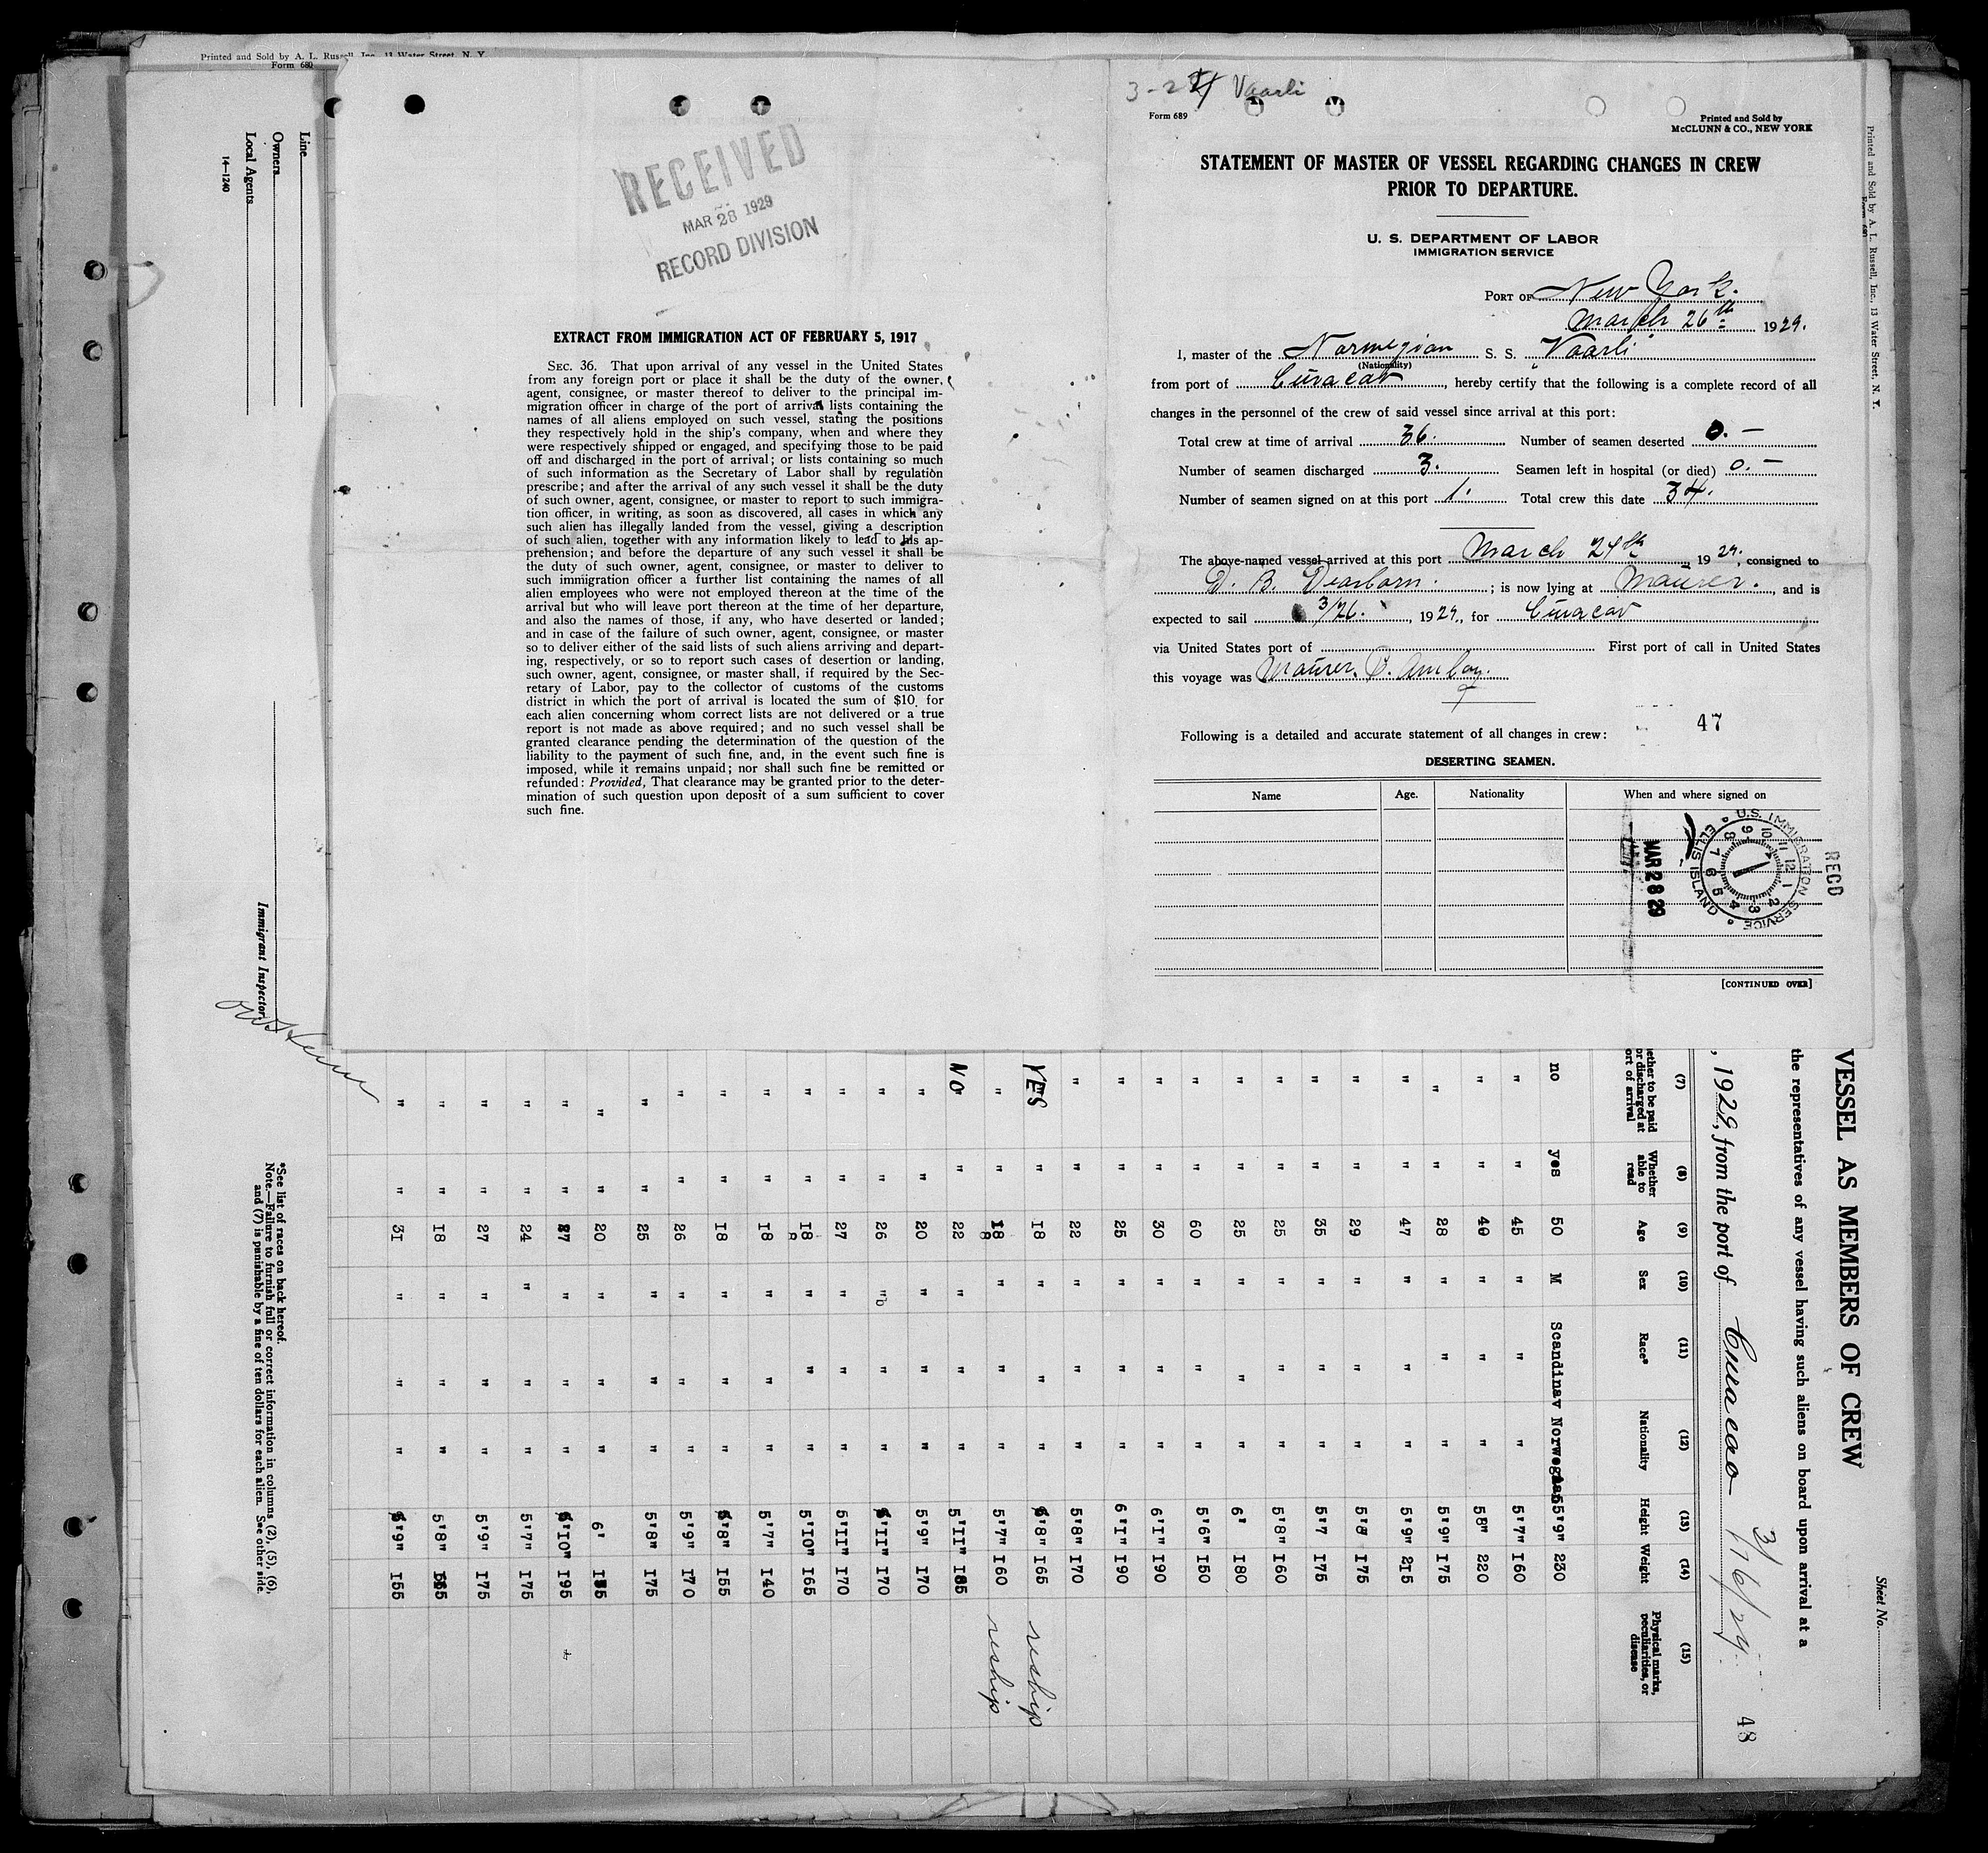 Printed and Sold by A. L. Russell, Inc., 13 Water Street, N. Y.
Form 680
Line
Owners
Local Agents
14—1240
Immigrant Inspector.
*See list of races on back hereof.
Note.—Failure to furnish full or correct information in columns (2), (5), (6),
and (7) is punishable by a fine of ten dollars for each alien. See other side.
RECEIVED
MAR 28 1929
RECORD DIVISION
EXTRACT FROM IMMIGRATION ACT OF FEBRUARY 5, 1917
SEC. 36. That upon arrival of any vessel in the United States
from any foreign port or place it shall be the duty of the owner,
agent, consignee, or master thereof to deliver to the principal im-
migration officer in charge of the port of arrival lists containing the
names of all aliens employed on such vessel, stating the positions
they respectively hold in the ship's company, when and where they
were respectively shipped or engaged, and specifying those to be paid
off and discharged in the port of arrival; or lists containing so much
of such information as the Secretary of Labor shall by regulation
prescribe; and after the arrival of any such vessel it shall be the duty
of such owner, agent, consignee, or master to report to such immigra-
tion officer, in writing, as soon as discovered, all cases in which any
such alien has illegally landed from the vessel, giving a description
of such alien, together with any information likely to lead to his ap-
prehension; and before the departure of any such vessel it shall be
the duty of such owner, agent, consignee, or master to deliver to
such immigration officer a further list containing the names of all
alien employees who were not employed thereon at the time of the
arrival but who will leave port thereon at the time of her departure,
and also the names of those, if any, who have deserted or landed;
and in case of the failure of such owner, agent, consignee, or master
so to deliver either of the said lists of such aliens arriving and depart-
ing, respectively, or so to report such cases of desertion or landing,
such owner, agent, consignee, or master shall, if required by the Sec-
retary of Labor, pay to the collector of customs of the customs
district in which the port of arrival is located the sum of $10 for
each alien concerning whom correct lists are not delivered or a true
report is not made as above required; and no such vessel shall be
granted clearance pending the determination of the question of the
liability to the payment of such fine, and, in the event such fine is
imposed, while it remains unpaid; nor shall such fine be remitted or
refunded: Provided, That clearance may be granted prior to the deter-
mination of such question upon deposit of a sum sufficient to cover
such fine.
3-24 Vaarli
Form 689
Printed and Sold by
McCLUNN & CO., NEW YORK
STATEMENT OF MASTER OF VESSEL REGARDING CHANGES IN CREW
PRIOR TO DEPARTURE.
U. S. DEPARTMENT OF LABOR
IMMIGRATION SERVICE
PORT OF New York.
March 26th 1929.
I, master of the Norwegian S. S. Vaarli
(Nationality)
from port of Curacao, hereby certify that the following is a complete record of all
changes in the personnel of the crew of said vessel since arrival at this port:
Total crew at time of arrival 36. Number of seamen deserted 0. —
Number of seamen discharged 3. Seamen left in hospital (or died) 0. —
Number of seamen signed on at this port 1. Total crew this date 34.
The above-named vessel arrived at this port March 24th 1929., consigned to
D. B. Dearborn.; is now lying at Maurer., and is
expected to sail 3/26., 1929., for Curacao
via United States port of First port of call in United States
this voyage was Maurer, P. Amboy.
47
Following is a detailed and accurate statement of all changes in crew:
DESERTING SEAMEN.
Name Age. Nationality When and where signed on
U.S. IMMIGRATION SERVICE ELLIS ISLAND
RECD
MAR 28 29
[CONTINUED OVER]
Printed and Sold by A. L. Russell, Inc., 13 Water Street, N. Y.
Sheet No.
VESSEL AS MEMBERS OF CREW
the representatives of any vessel having such aliens on board upon arrival at a
, 1929, from the port of Curacao 3/16/29.
48
(7) (8) (9) (10) (11) (12) (13) (14) (15)
ether to be paid or discharged at ort of arrival Whether able to read Age Sex Race* Nationality Height Weight Physical marks, peculiarities, or disease
no yes 50 M Scandinav Norwegian 5'9" 230
" " 45 " " " 5'7" 160
" " 40 " " " 58" 220
" " 28 " " " 5'9" 175
" " 47 " " " 5'9" 215
" " 29 " " " 5'8 175
" " 35 " " " 5'7 175
" " 25 " " " 5'8" 160
" " 25 " " " 6' 180
" " 60 " " " 5'6" 150
" " 30 " " " 6'1" 190
" " 25 " " " 6'1" 190
" " 22 " " " 5'8" 170
YES " 18 " " " 5'8" 165 reship
" " 18 " " " 5'7" 160 reship
NO " 22 " " " 5'11" 185
" " 20 " " " 5'9" 170
" " 26 " " " 5'11" 170
" " 27 " " " 5'11" 170
" " 18 " " " 5'10" 165
" " 18 " " " 5'7" 140
" " 18 " " " 5'8" 155
" " 26 " " " 5'9" 170
" " 25 " " " 5'8" 175
" " 20 " " " 6'
" " 27 " " " 5'10" 195
" " 24 " " " 5'7" 175
" " 27 " " " 5'9" 175
" " 18 " " " 5'8"
" " 31 " " " 5'9" 155